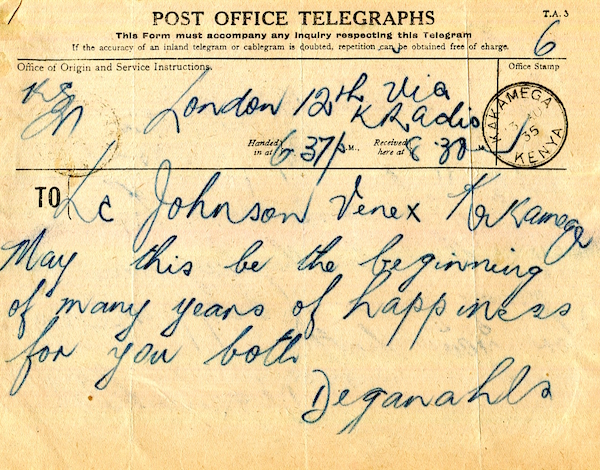 POST OFFICE TELEGRAPHS
T.A. 3
This Form must accompany any inquiry respecting this Telegram
If the accuracy of an inland telegram or cablegram is doubted, repetition can be obtained free of charge.
6
Office of Origin and Service Instructions.
Office Stamp
London 12th Via
K Radio
Handed in at 6 37 P.M., Received here at 8 30 M.
KAKAMEGA
35
KENYA
TO Lc Johnson Venex Kakamega
May this be the beginning
of many years of happiness
for you both
Deganahls